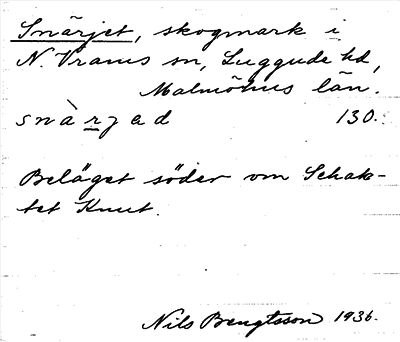 Snärjet, skogmark i
N. Vrams sn, Luggude hd,
Malmöhus län.
snàrjad 130.
Beläget söder om Schak-
tet Knut.
Nils Bengtsson 1936.